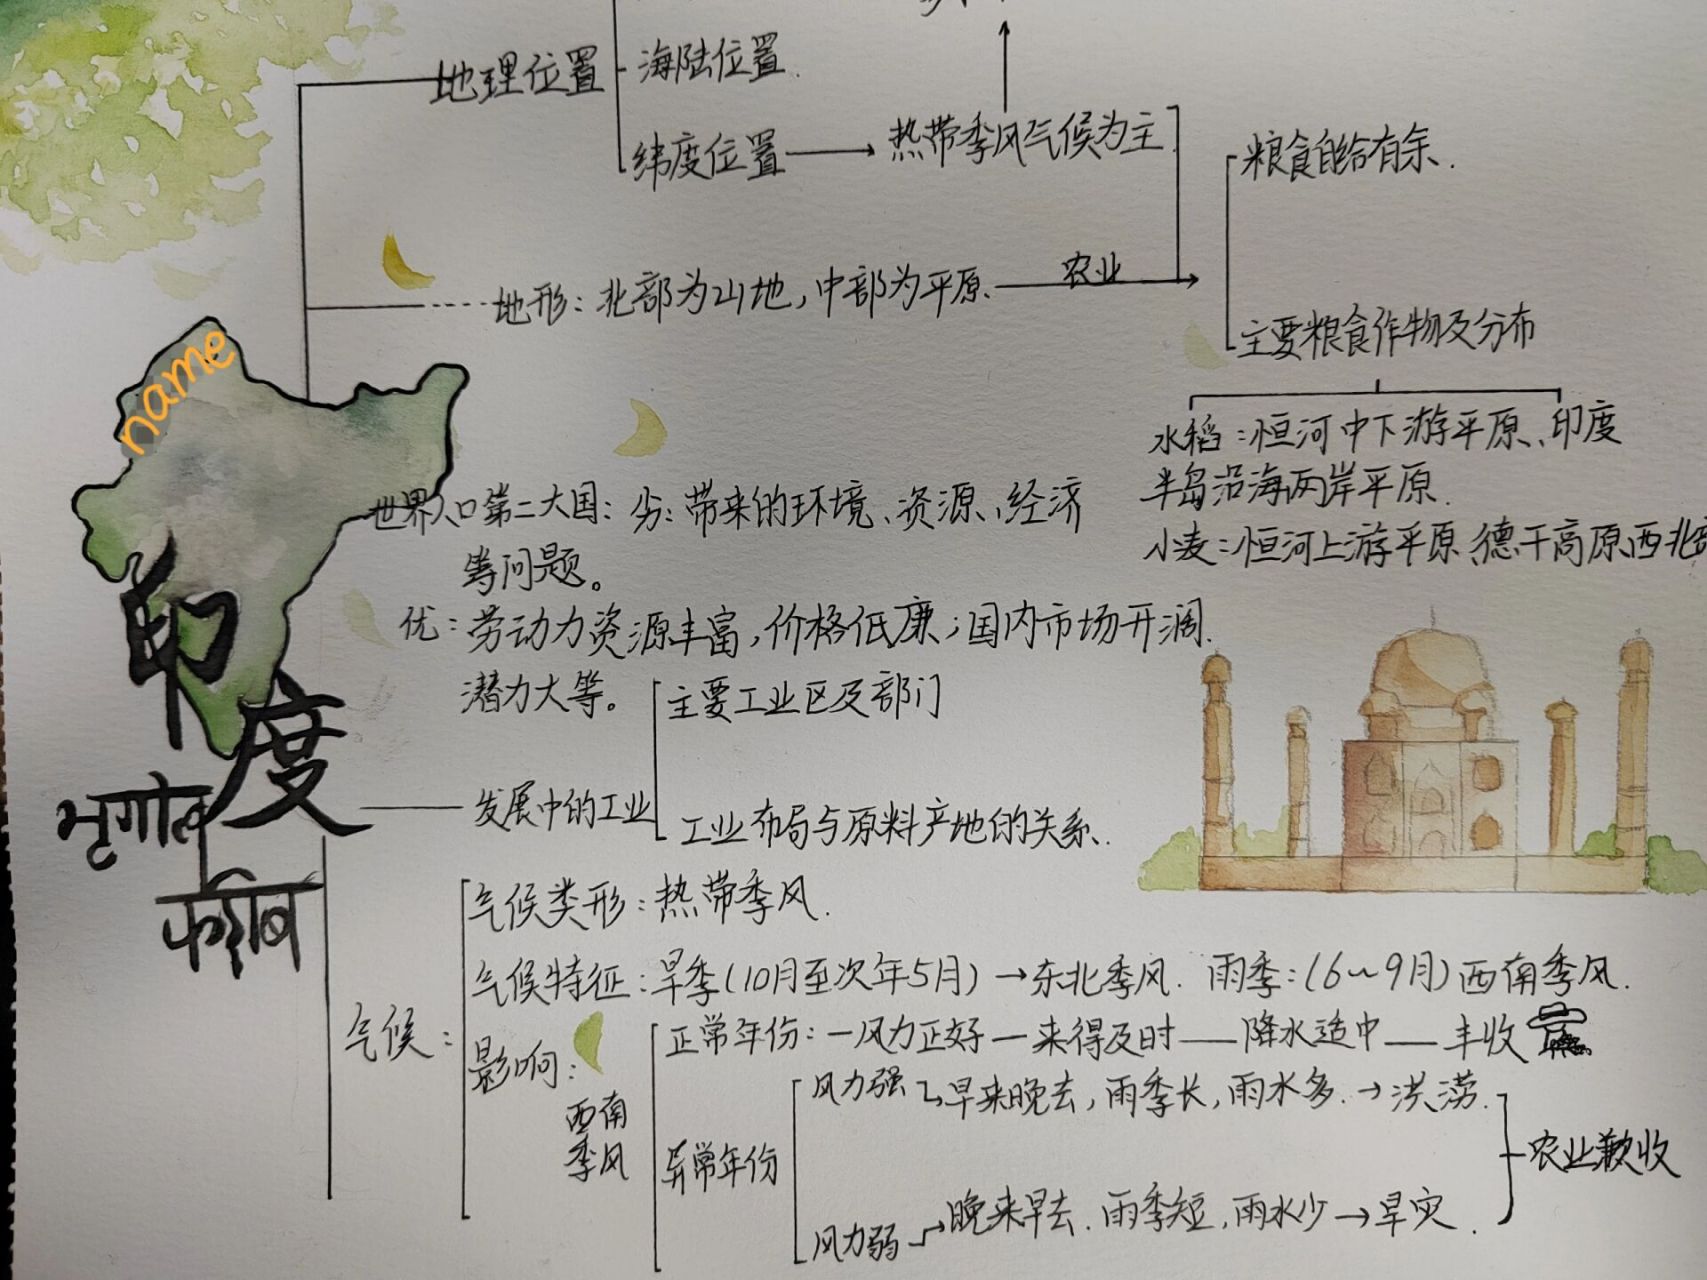 地理位置
海陆位置.
纬度位置
热带季风气候为主.
粮食自给有余.
地形：北部为山地，中部为平原.
农业
主要粮食作物及分布
name
水稻：恒河中下游平原、印度
半岛沿海两岸平原.
小麦：恒河上游平原、德干高原西北
世界人口第二大国：劣：带来的环境、资源、经济
等问题。
优：劳动力资源丰富，价格低廉；国内市场开阔.
潜力大等。
印度
主要工业区及部门
发展中的工业
工业布局与原料产地的关系.
气候：
气候类形：热带季风.
气候特征：旱季(10月至次年5月)→东北季风. 雨季：(6~9月)西南季风.
影响：
西南
季风
正常年份：—风力正好—来得及时—降水适中—丰收
异常年份
风力强 早来晚去，雨季长，雨水多.→洪涝.
风力弱 晚来早去.雨季短，雨水少→旱灾.
农业歉收